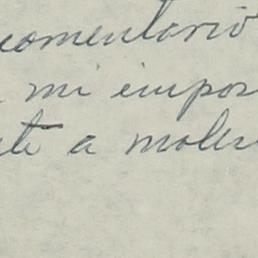 comentario
mi impor
te a moles